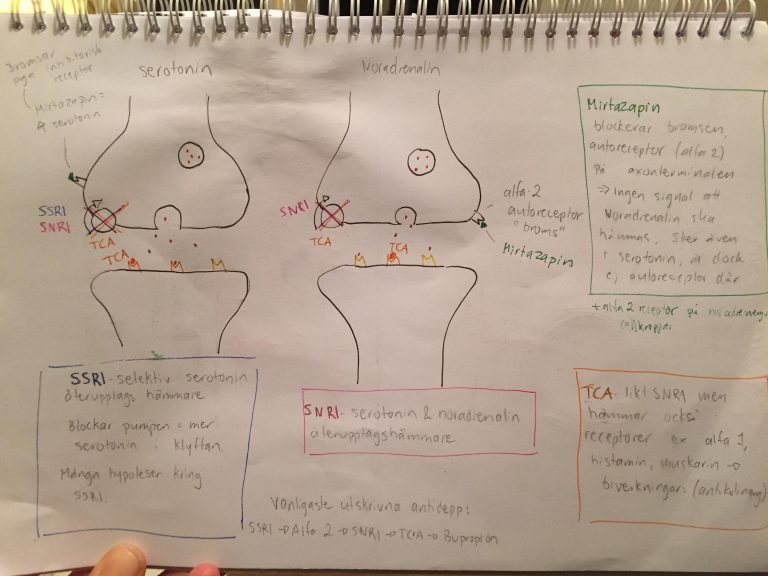 Bromsar
pga inhibitorisk
receptor
Mirtazapin =
serotonin
serotonin
SSRI
SNRI
TCA
TCA
Noradrenalin
SNRI
TCA
TCA
alfa-2
autoreceptor
"broms"
Mirtazapin
Mirtazapin
blockerar bromsen,
autoreceptor (alfa 2)
på axonterminalen
⇒ Ingen signal att
Noradrenalin ska
hämmas. Sker även
i serotonin, är dock
ej autoreceptor där
+ alfa 2 receptor på
SSRI - selektiv serotonin
återupptags hämmare
Blockar pumpen = mer
serotonin i klyftan.
Många hypoteser kring
SSRI.
SNRI - serotonin & noradrenalin
återupptagshämmare.
TCA - likt SNRI men
hämmar också
receptorer ex alfa 1,
histamin, muskarin →
biverkningar (antikolinerg)
Vanligaste utskrivna antidepp:
SSRI → Alfa 2 → SNRI → TCA → Bupropion